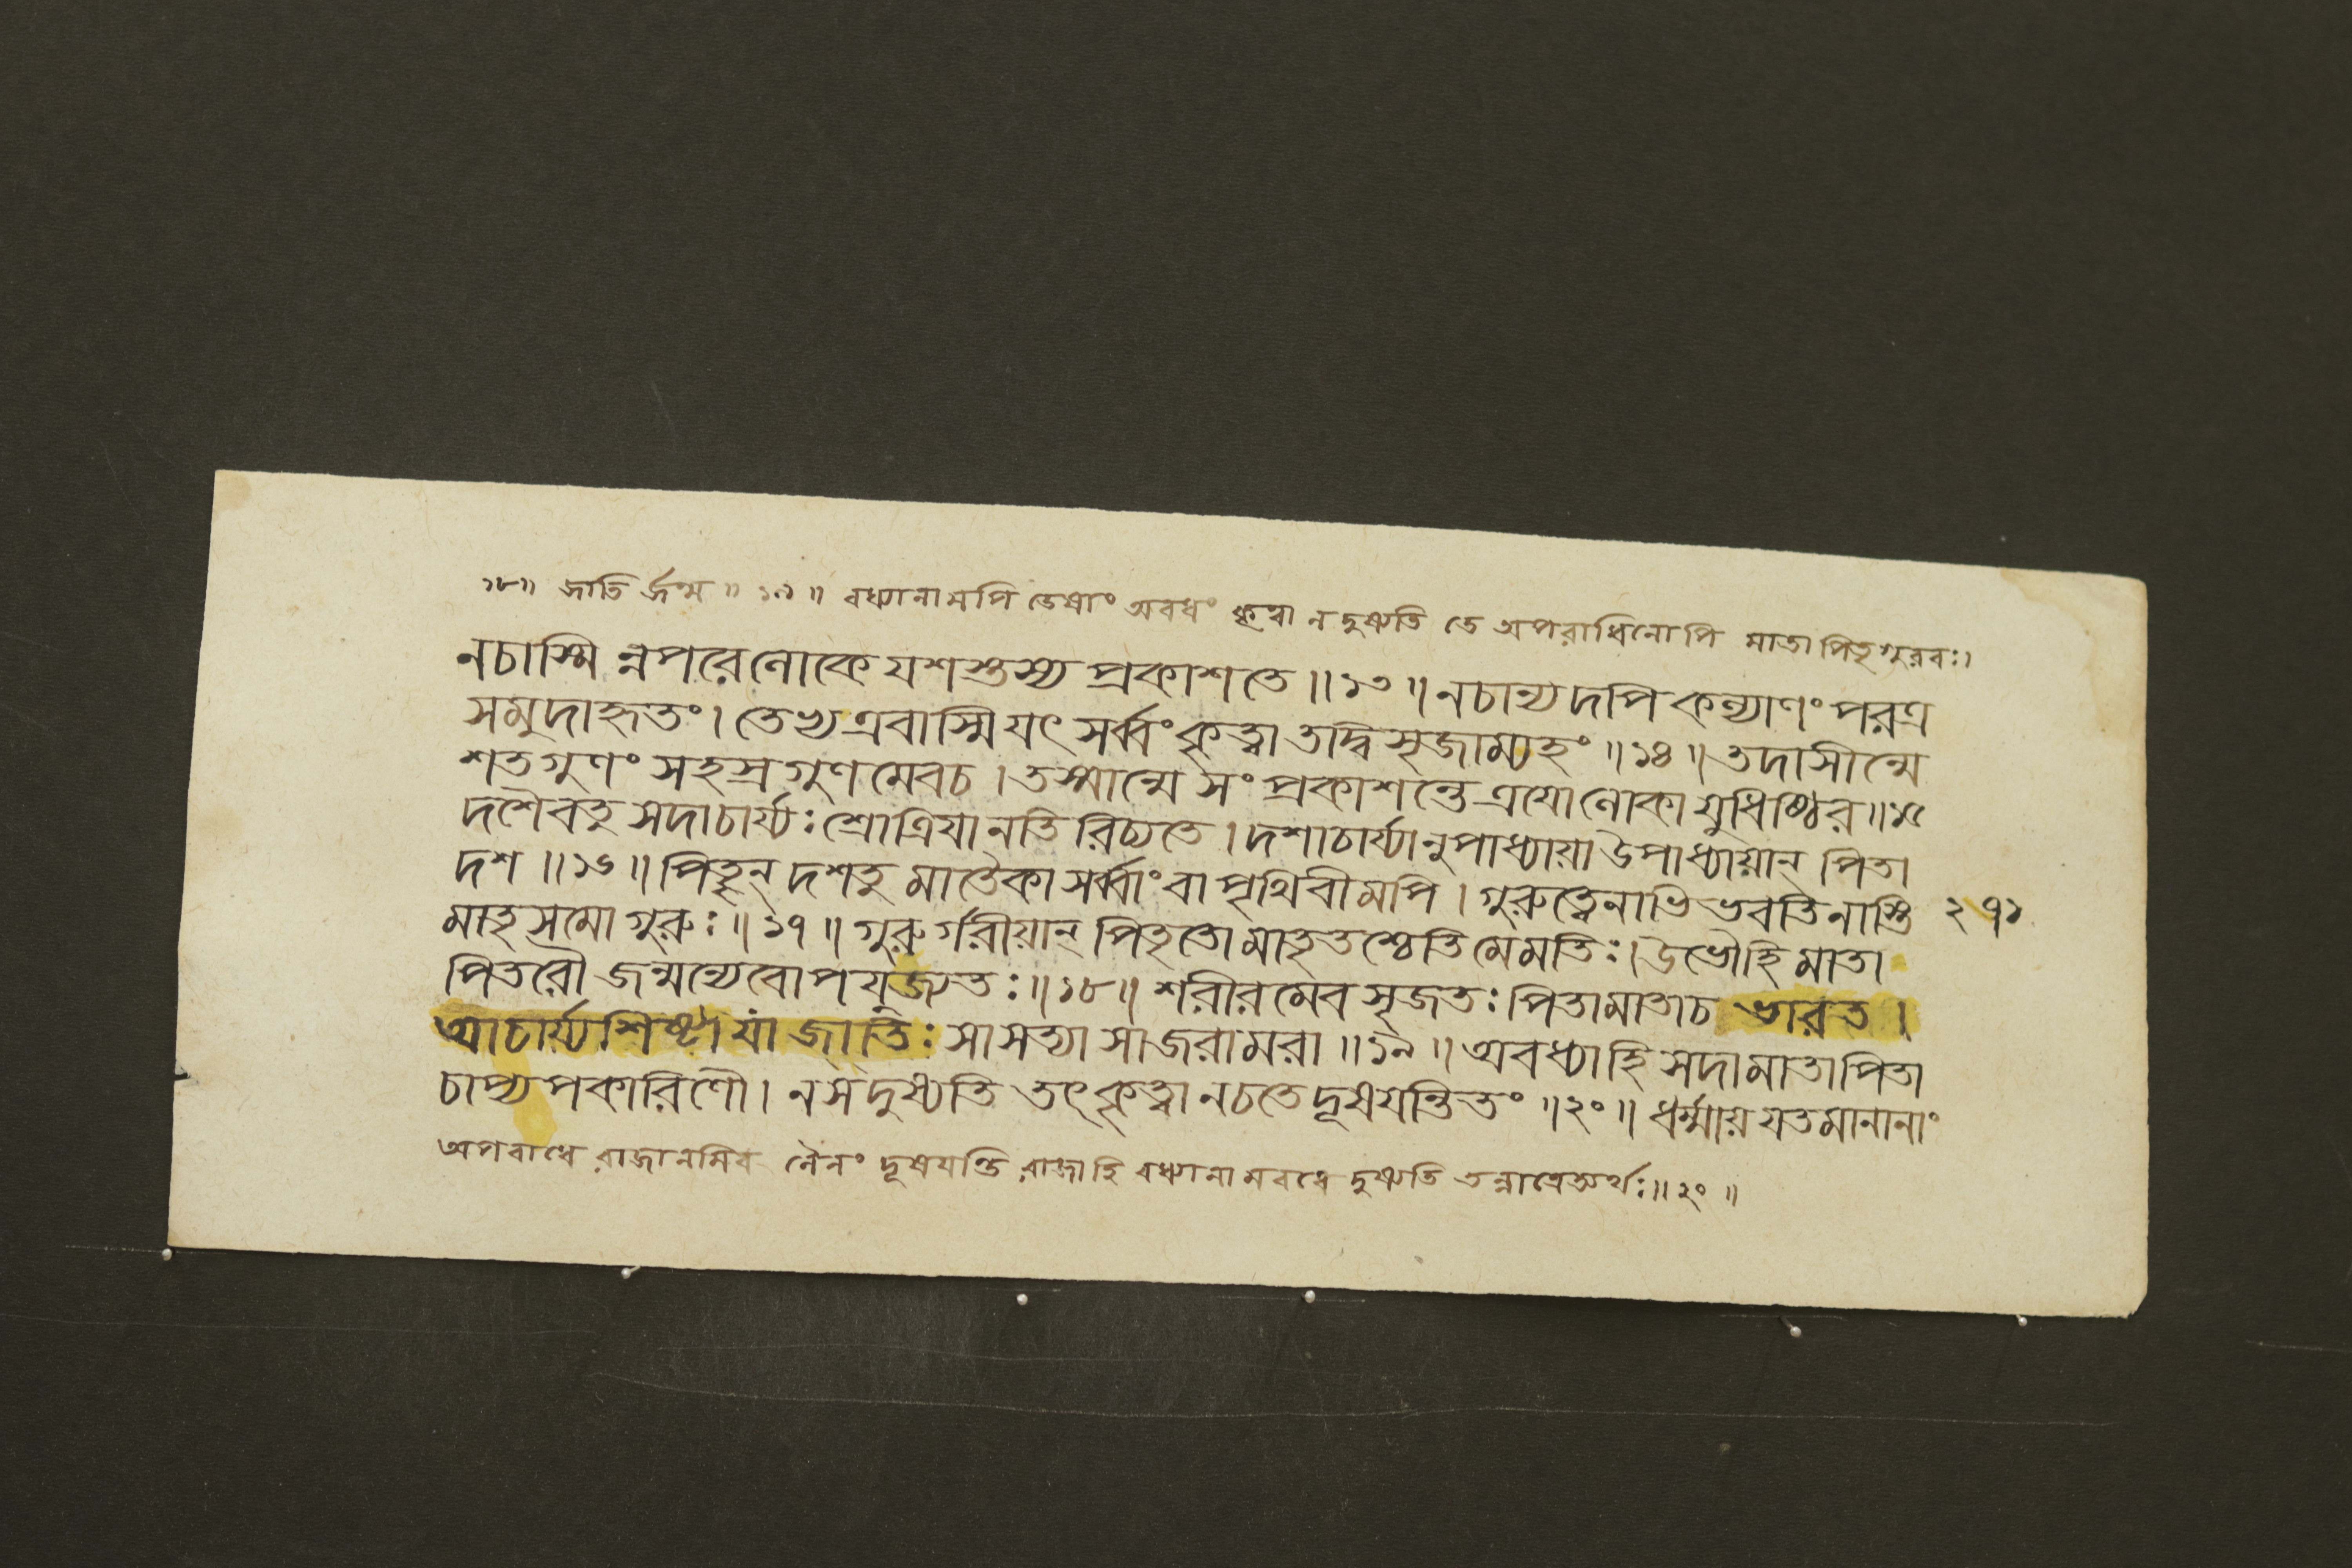 ১৮॥ জাতি র্জন্ম ॥ ১৯ ॥ বধ্যানামপি তেষাং অবধং কৃত্বা ন দুষ্যতি তে অপরাধিনোপি মাতাপিতৃগুরবঃ।
নচাস্মি ন্নপরেলোকে যশস্তস্য প্রকাশতে ॥ ১৩ ॥ নচান্যদপি কল্যাণং পরত্র
সমুদাহৃতং। তেভ্য এবাস্মি যৎ সর্ব্বং কৃত্বা তদ্বিসৃজাম্যহং ॥ ১৪ ॥ তদাসীন্মে
শতগুণং সহস্রগুণমেবচ। তস্মান্মে সংপ্রকাশন্তে ত্রয়োলোকা যুধিষ্ঠির ॥ ১৫
দশৈবতু সদাচার্য্যঃ শ্রোত্রিযানতি রিচ্যতে। দশাচার্য্যানুপাধ্যায়া উপাধ্যায়ান্ পিতা
দশ ॥ ১৬ ॥ পিতৃন্ দশতু মাতৈকা সর্ব্বাং বা পৃথিবীমপি। গুরুত্বেনাভি ভবতি নাস্তি ২৭১
মাতৃসমো গুরুঃ ॥ ১৭ ॥ গুরু র্গরীয়ান্ পিতৃতো মাতৃতশ্চেতি মেমতিঃ। উভৌহি মাতা
পিতরৌ জন্মন্যেবোপযুজ্যতঃ ॥ ১৮ ॥ শরীরমেব সৃজতঃ পিতামাতাচ ভারত।
আচার্য্যশিষ্টা যা জাতিঃ সা সত্যা সাজরামরা ॥ ১৯ ॥ অবধ্যাহি সদামাতাপিতা
চাপ্যপকারিণৌ। নসদুষ্যতি তৎ কৃত্বা নচতে দূষযন্তি তং ॥ ২০ ॥ ধর্ম্মায় যতমানানাং
অপরাধে রাজানমিব নৈনং দূষযন্তি রাজাহি বধ্যানামবধে দুষ্যতি তন্নাত্রেঅর্থঃ ॥ ২০ ॥